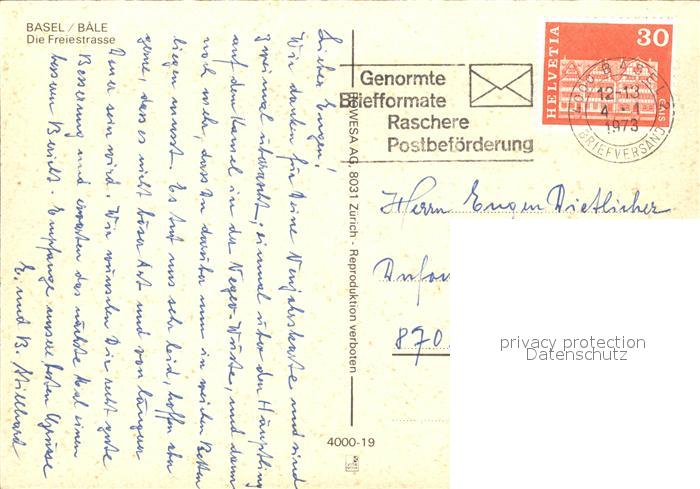 BASEL / BÂLE
Die Freiestrasse
Lieber Eugen!
Wir danken für Deine Neujahrskarte und sind
zweimal überrascht, einmal über den Häuptling
auf dem Kamel in der Neger-Wüste, und dann
noch mehr, dass Du darüber nun in weiden Betten
liegen musst. Es tut uns sehr leid, hoffen aber
gerne, dass es nicht böser Art und von längerer
Dauer sein wird. Wir wünschen Dir recht gute
Besserung und erwarten das nächste Mal einen
bessern Bericht. Empfange unsere besten Grüsse
E. und B. Stillhard
WESA AG, 8031 Zürich - Reproduktion verboten
4000-19
Genormte
Briefformate
Raschere
Postbeförderung
HELVETIA
30
4000 BASEL 2
12-13
4. -1
1973
BRIEFVERSAND
Herrn Eugen Dietlicher
870
privacy protection
Datenschutz